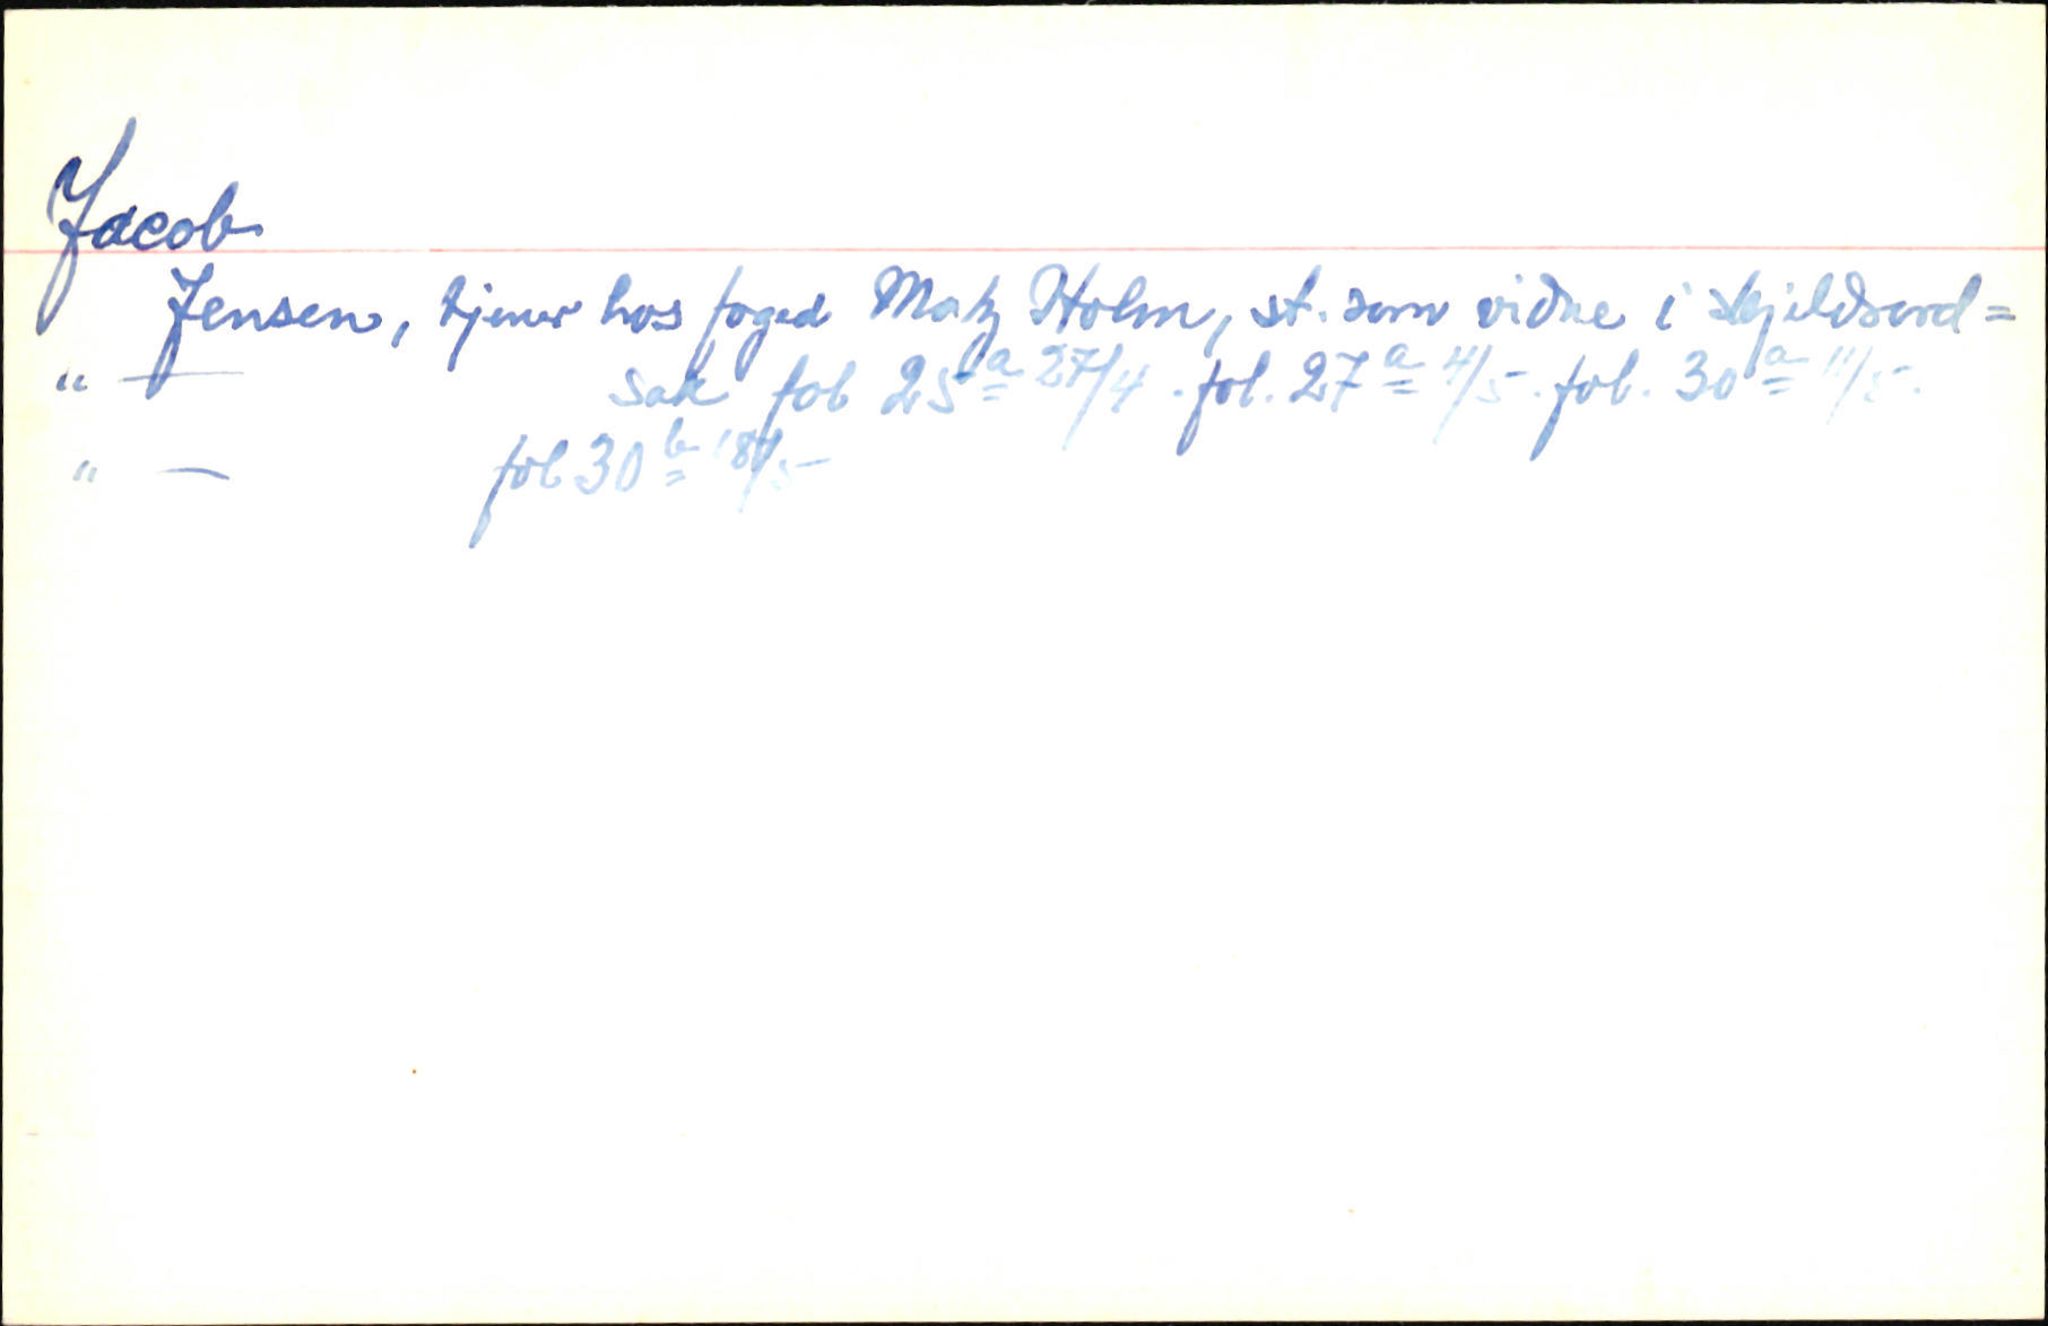 Jacob
Jensen, tjener hos foged Matz Holm, st. som vidne i skjeldsord=
" — sak fol 25a 27/4. fol. 27a 4/5. fol. 30a 11/5.
" — fol 30b 18/5